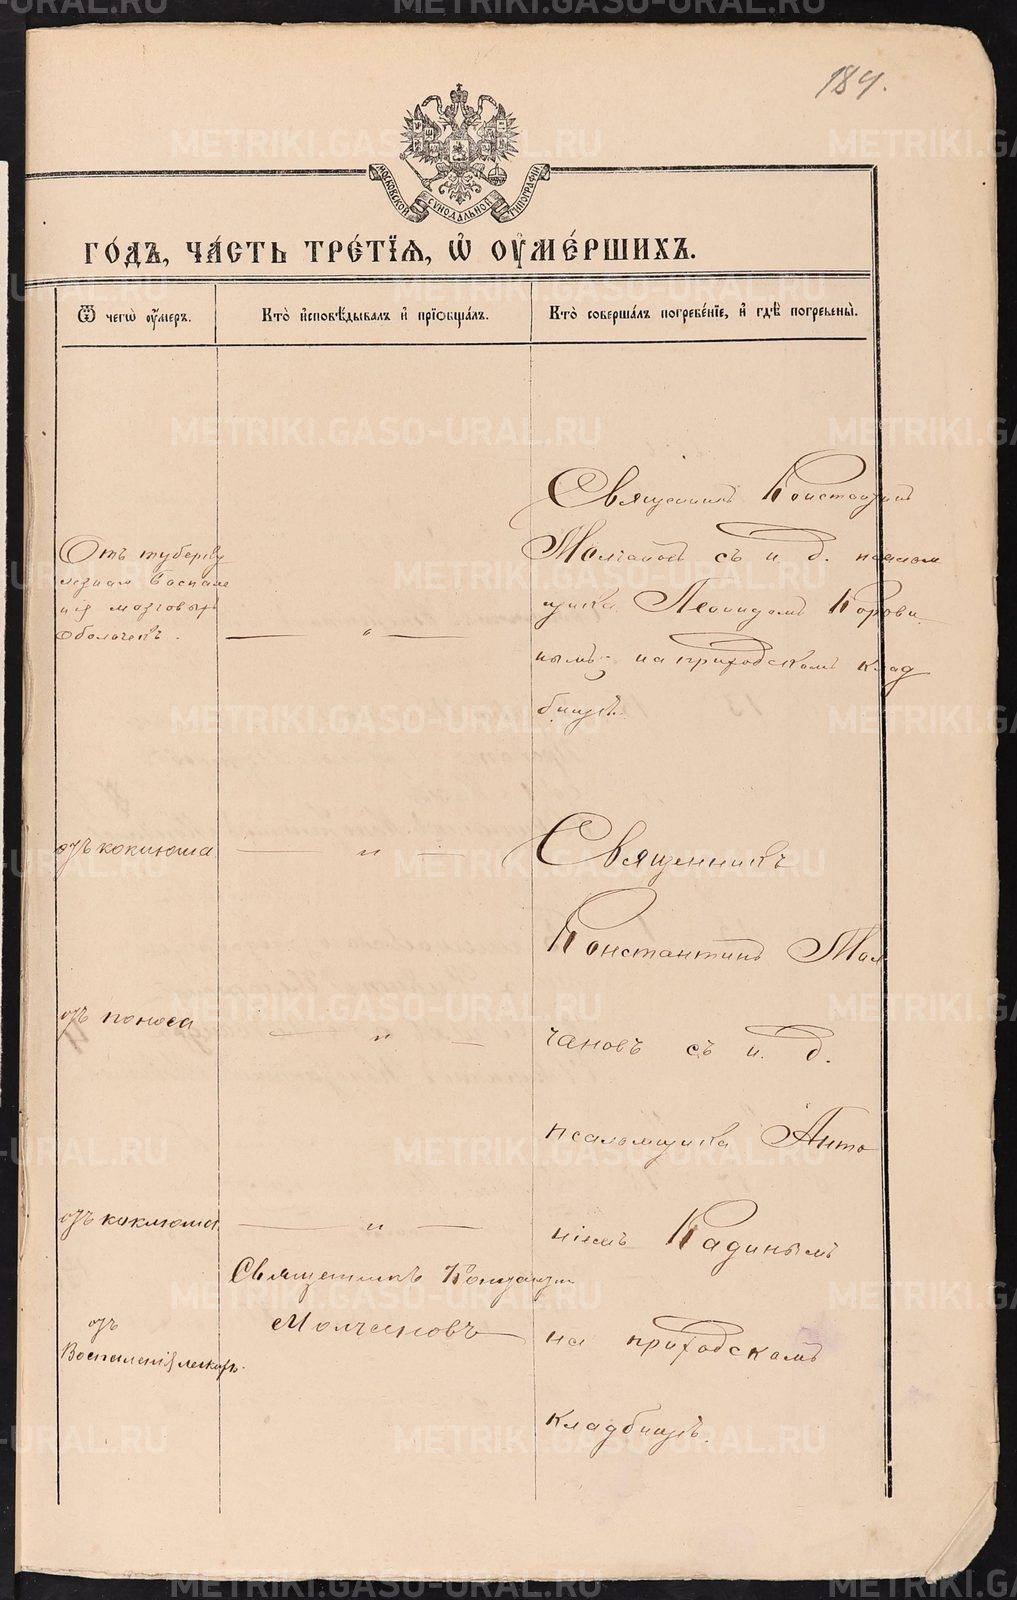 184.
МОСКОВСКОЙ СѴНОДАЛЬНОЙ ТИПОГРАФІИ
ГО́ДЪ, ЧА́СТЬ ТРЕ́ТІѦ, Ѡ҆ ОУ҆МЕ́РШИХЪ.
Ѿ чегѡ̀ оу҆́меръ.
Кто̀ и҆сповѣ́дывалъ и҆ прїѡбща́лъ.
Кто̀ соверша́лъ погребе́нїе, и҆ гдѣ̀ погребены̀.
Отъ туберку
лезнаго Воспале
нія мозговыхъ
оболочекъ.
— " —
Священникъ Константинъ
Молчановъ съ и. д. псалом
щика Леонидомъ Корови
нымъ на приходскомъ клад
бищѣ.
отъ коклюша
— " —
Священникъ
Константинъ Мол
чановъ съ и. д.
псаломщика Анто
ніемъ Кадинымъ
на приходскомъ
кладбищѣ.
отъ поноса
— " —
отъ коклюша
— " —
отъ
Воспаленія легкихъ.
Священникъ Константинъ
Молчановъ
METRIKI.GASO-URAL.RU